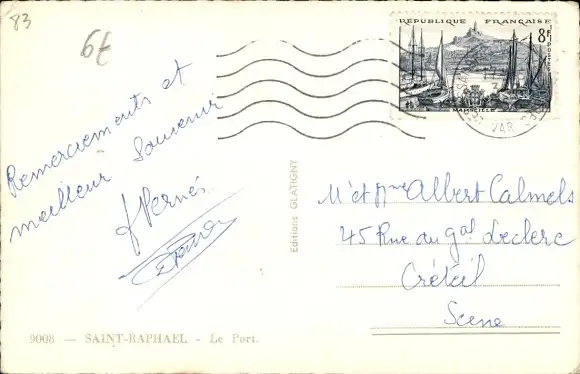 83
6f
RÉPUBLIQUE FRANÇAISE
8F
POSTES
MARSEILLE
VAR
Remerciements et
meilleur souvenir
J Vernes
Editions GLATIGNY
M' et Mme Albert Calmels
45 Rue du Gal Leclerc
Créteil
Seine
9008 — SAINT-RAPHAEL - Le Port.